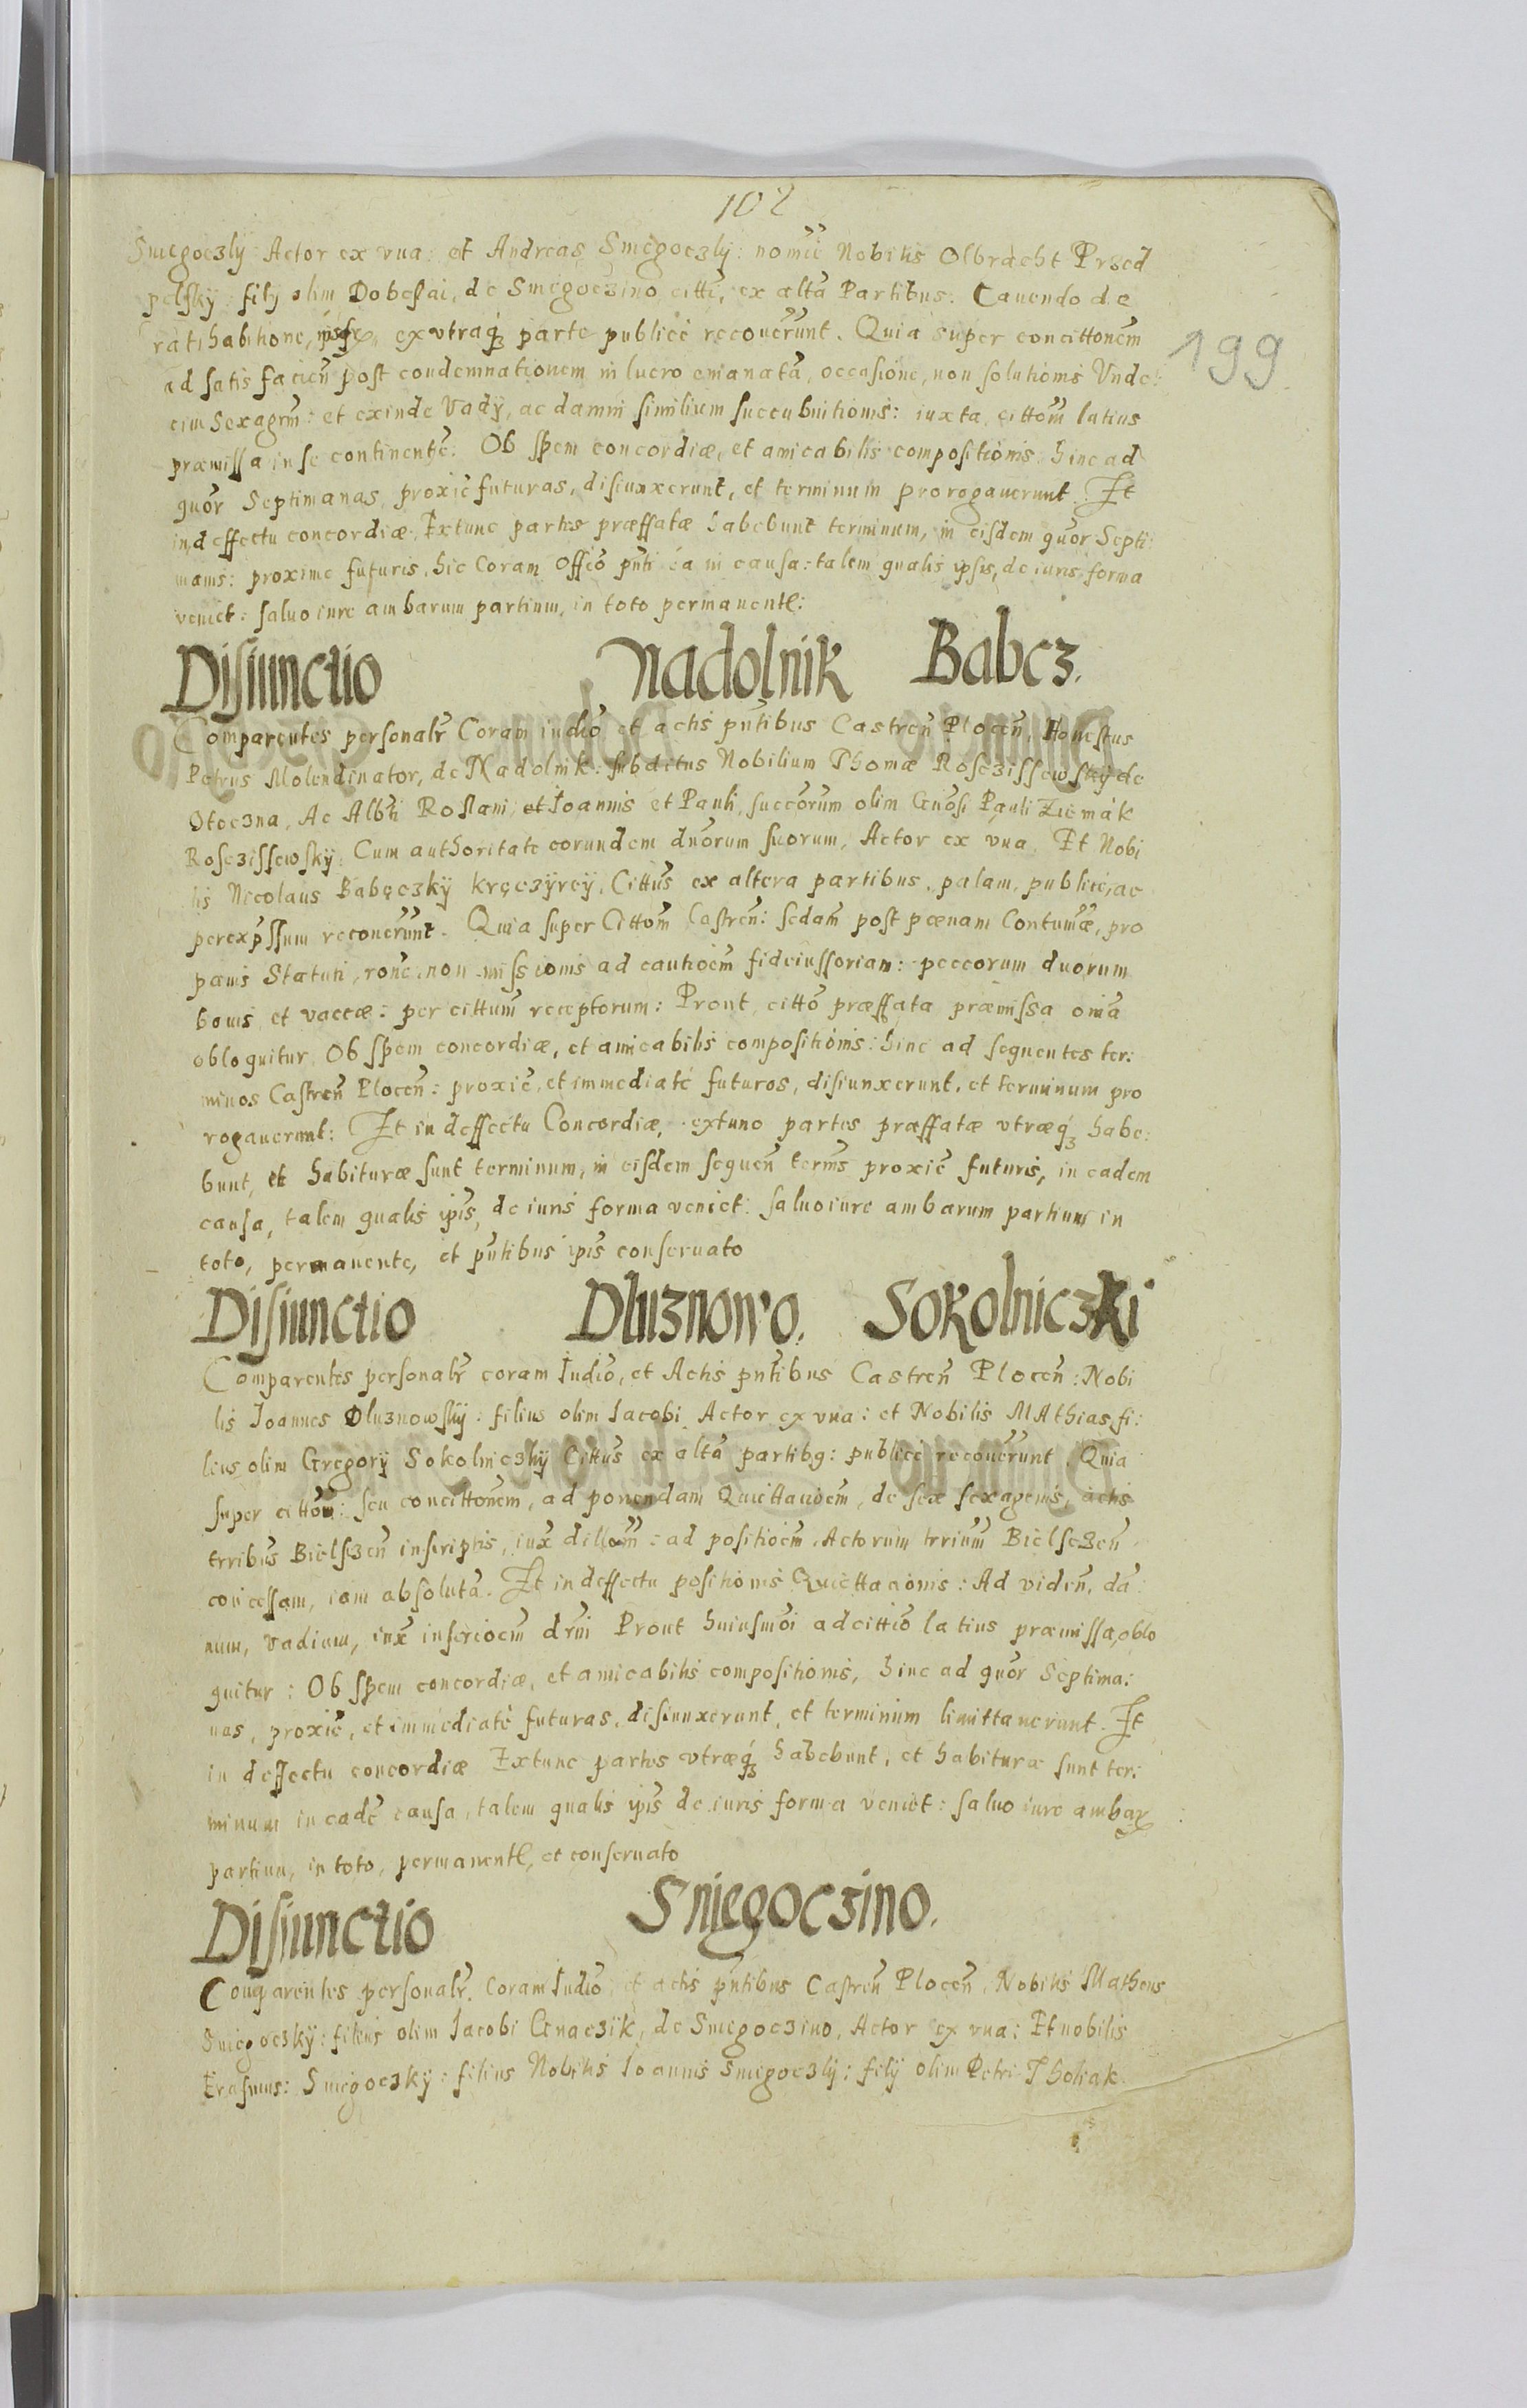 102
199
Sniegoczky Actor ex vna: et Andreas Sniegoczky: nomie Nobilis Olbracht Przed
pelsky: filij olim Dobeslai, de Sniegoczino citti, ex altã Partibus. Cauendo de
ratihabitione, ex vtraq₃ parte publicè recouerũnt. Quia super concittonẽm
ad satis facieñ post condemnationem in lucro emanatã, occasione, non solutionis Vnde:
cim Sexagrm̃: et exinde Vadÿ, ac damni similium succubuitionis: iuxta cittom̃ latius
præmissa in se continentẽ: Ob spem concordiæ, et amicabilis compositionis hinc ad
quõr Septimanas proxiẽ futuras, disiunxerunt, et terminum prorogauerunt. Et
in deffectu concordiæ. Extunc partes præffatæ habebunt terminum, in eisdem quõr Septi:
manis: proxime futuris, hic Coram Offiõ pñti eã in causa: talem qualis ipsis, de iuris forma
veniet: saluo iure ambarum partium, in toto permanentẽ:
Disiunctio Nadolnik Babcz.
Comparentes personalr̃ Coram iudiõ et actis pñtibus Castreñ Ploceñ, Honestus
Petrus Molendinator, de Nadolnik: subditus Nobilium Thomæ Rosczissewsky de
Otoczna, Ac Albti Roslani et Ioannis et Pauli, succõrum olim Gnõsi Pauli Ziemak
Rosczissewsky: Cum authoritate eorundem dnõrum suorum, Actor ex vna. Et Nobi
lis Nicolaus Babęczkÿ kręczÿrcÿ, Cittũs ex altera partibus, palam, publicè, ac
perexp̃ssum recouerũnt. Quia super Cittom̃ Castreñ: sedam̃ post pœnam Contumæ, pro
pœnis Statuti, ronẽ, non missionis ad cautioẽm fideiussoriam: peccorum duorum
bouis, et vaccæ: per cittum̃ receptorum: Prout, cittõ præffata præmissa oniã
obloquitur, Ob spem concordiæ, et amicabilis compositionis: hinc ad sequentes ter:
minos Castreñ Ploceñ: proxiẽ, et immediatè futuros, disiunxerunt, et terminum pro
rogauerunt: Et in deffectu Concordiæ, extunc partes præffatæ vtræq₃ habe:
bunt, et habituræ sunt terminum, in eisdem sequeñ termĩs proxiẽ futuris, in eadem
causa, talem qualis ipĩs, de iuris forma veniet: saluo iure ambarum partium in
toto, permanente, et pñtibus ipĩs conseruato
Disiunctio Dluznowo. Sokolniczki
Comparentes personalr̃ coram Iudiõ, et Actis pñtibus Castreñ Ploceñ: Nobi
lis Ioannes Dluznowsky: filius olim Iacobi Actor ex vna: et Nobilis MAthias fi:
lius olim Gregorÿ Sokolniczky Cittũs ex altã partibg: publicè recouerũnt. Quia
super cittom̃: seu concittonẽm, ad ponendam Quiettacioẽm, de sex sexagenis, actis
trribũs Bielsczeñ inscriptis, iux̃ dillom̃: ad positioẽm Actorum trrium̃ Bielsczeñ
concessam, iam absolutã. Et in deffectu positionis Quiettationis: Ad videñ, dã:
num, vadium, iux̃ inscrioẽm dr̃ni Prout huiusmõi adcittiõ latius præmissa, oblo
quitur: Ob spem concordiæ, et amicabilis compositionis, hinc ad quõr Septima:
nas, proxiẽ, et immediatè futuras, disiunxerunt, et terminum limittauerunt. Et
in deffectu concordiæ Extunc partes vtræq₃ habebunt, et habituræ sunt ter:
minum in eadẽ causa, talem qualis ipĩs de iuris forma veniet: saluo iure ambaꝝ
partium, in toto, permanentẽ, et conseruato
Disiunctio Sniegoczino.
Comparentes personalr̃. Coram Iudiõ, et actis pñtibus Castreñ Ploceñ, Nobilis Matheus
Sniegoczkÿ: filius olim Iacobi Gnaczik, de Sniegoczino, Actor ex vna: Et nobilis
Erasmus: Sniegoczkÿ: filius Nobilis Ioannis Sniegoczky: filij olim Petri Tholiak